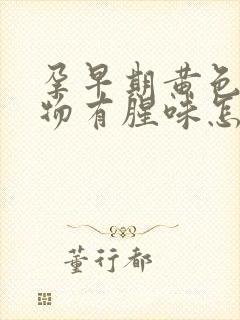 孕早期黄色
物有腥味怎
董行都